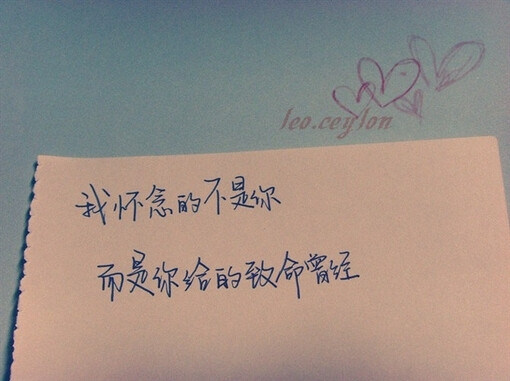 leo.ceylon
我怀念的不是你
而是你给的致命曾经